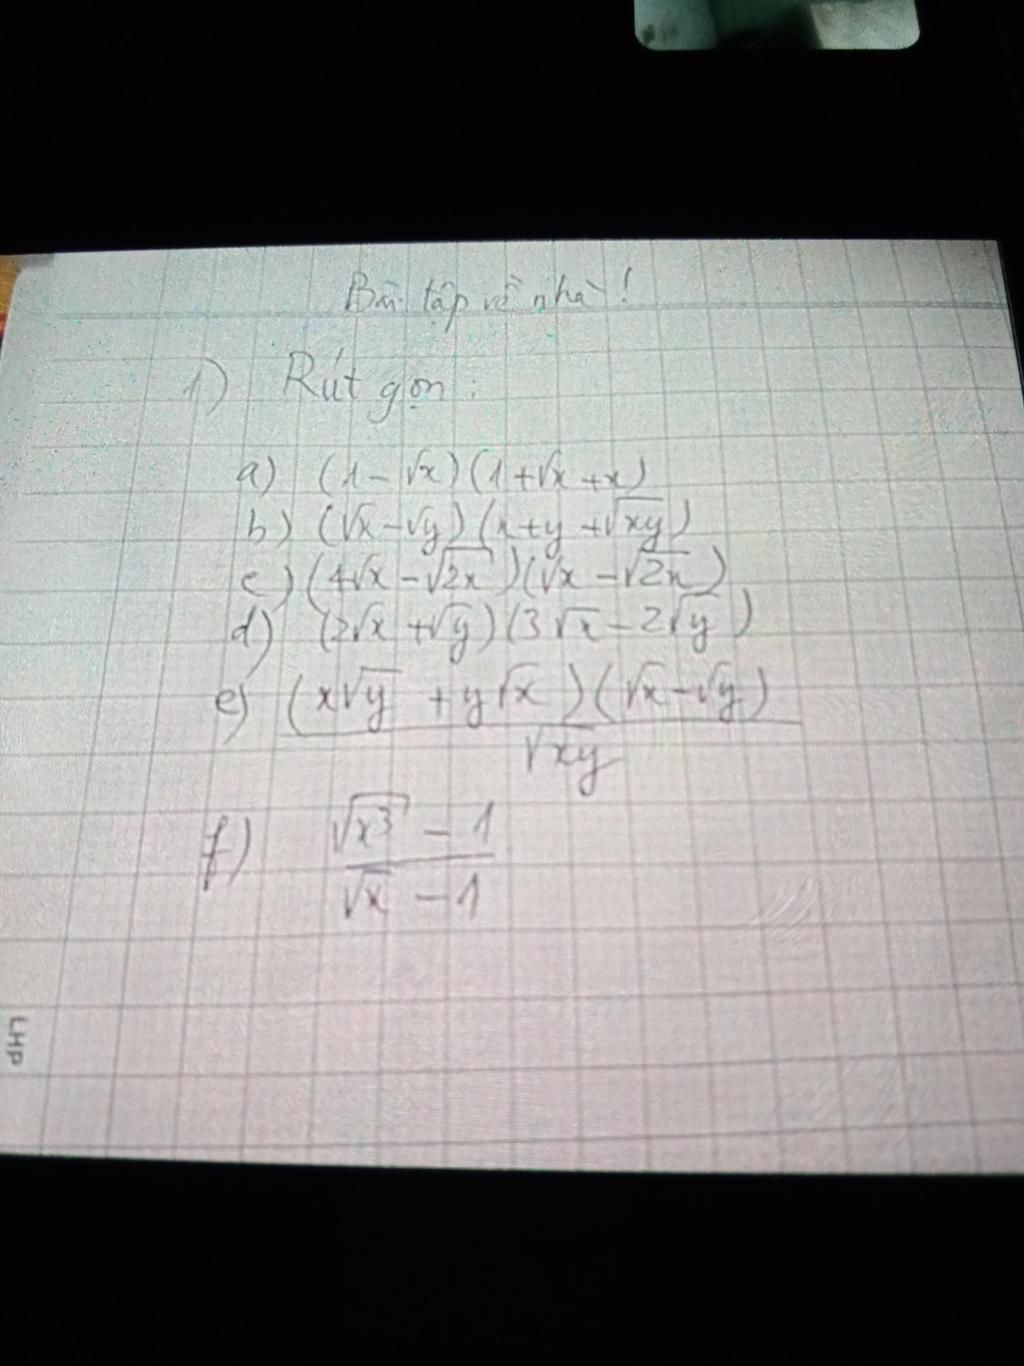 Bài tập về nhà!
1) Rút gọn:
a) (1 - √x)(1 + √x + x)
b) (√x - √y)(x + y + √xy)
c) (4√x - √2x)(√x - √2x)
d) (2√x + √y)(3√x - 2√y)
e) (x√y + y√x)(√x - √y)
√xy
f) √x³ - 1
√x - 1
LHP